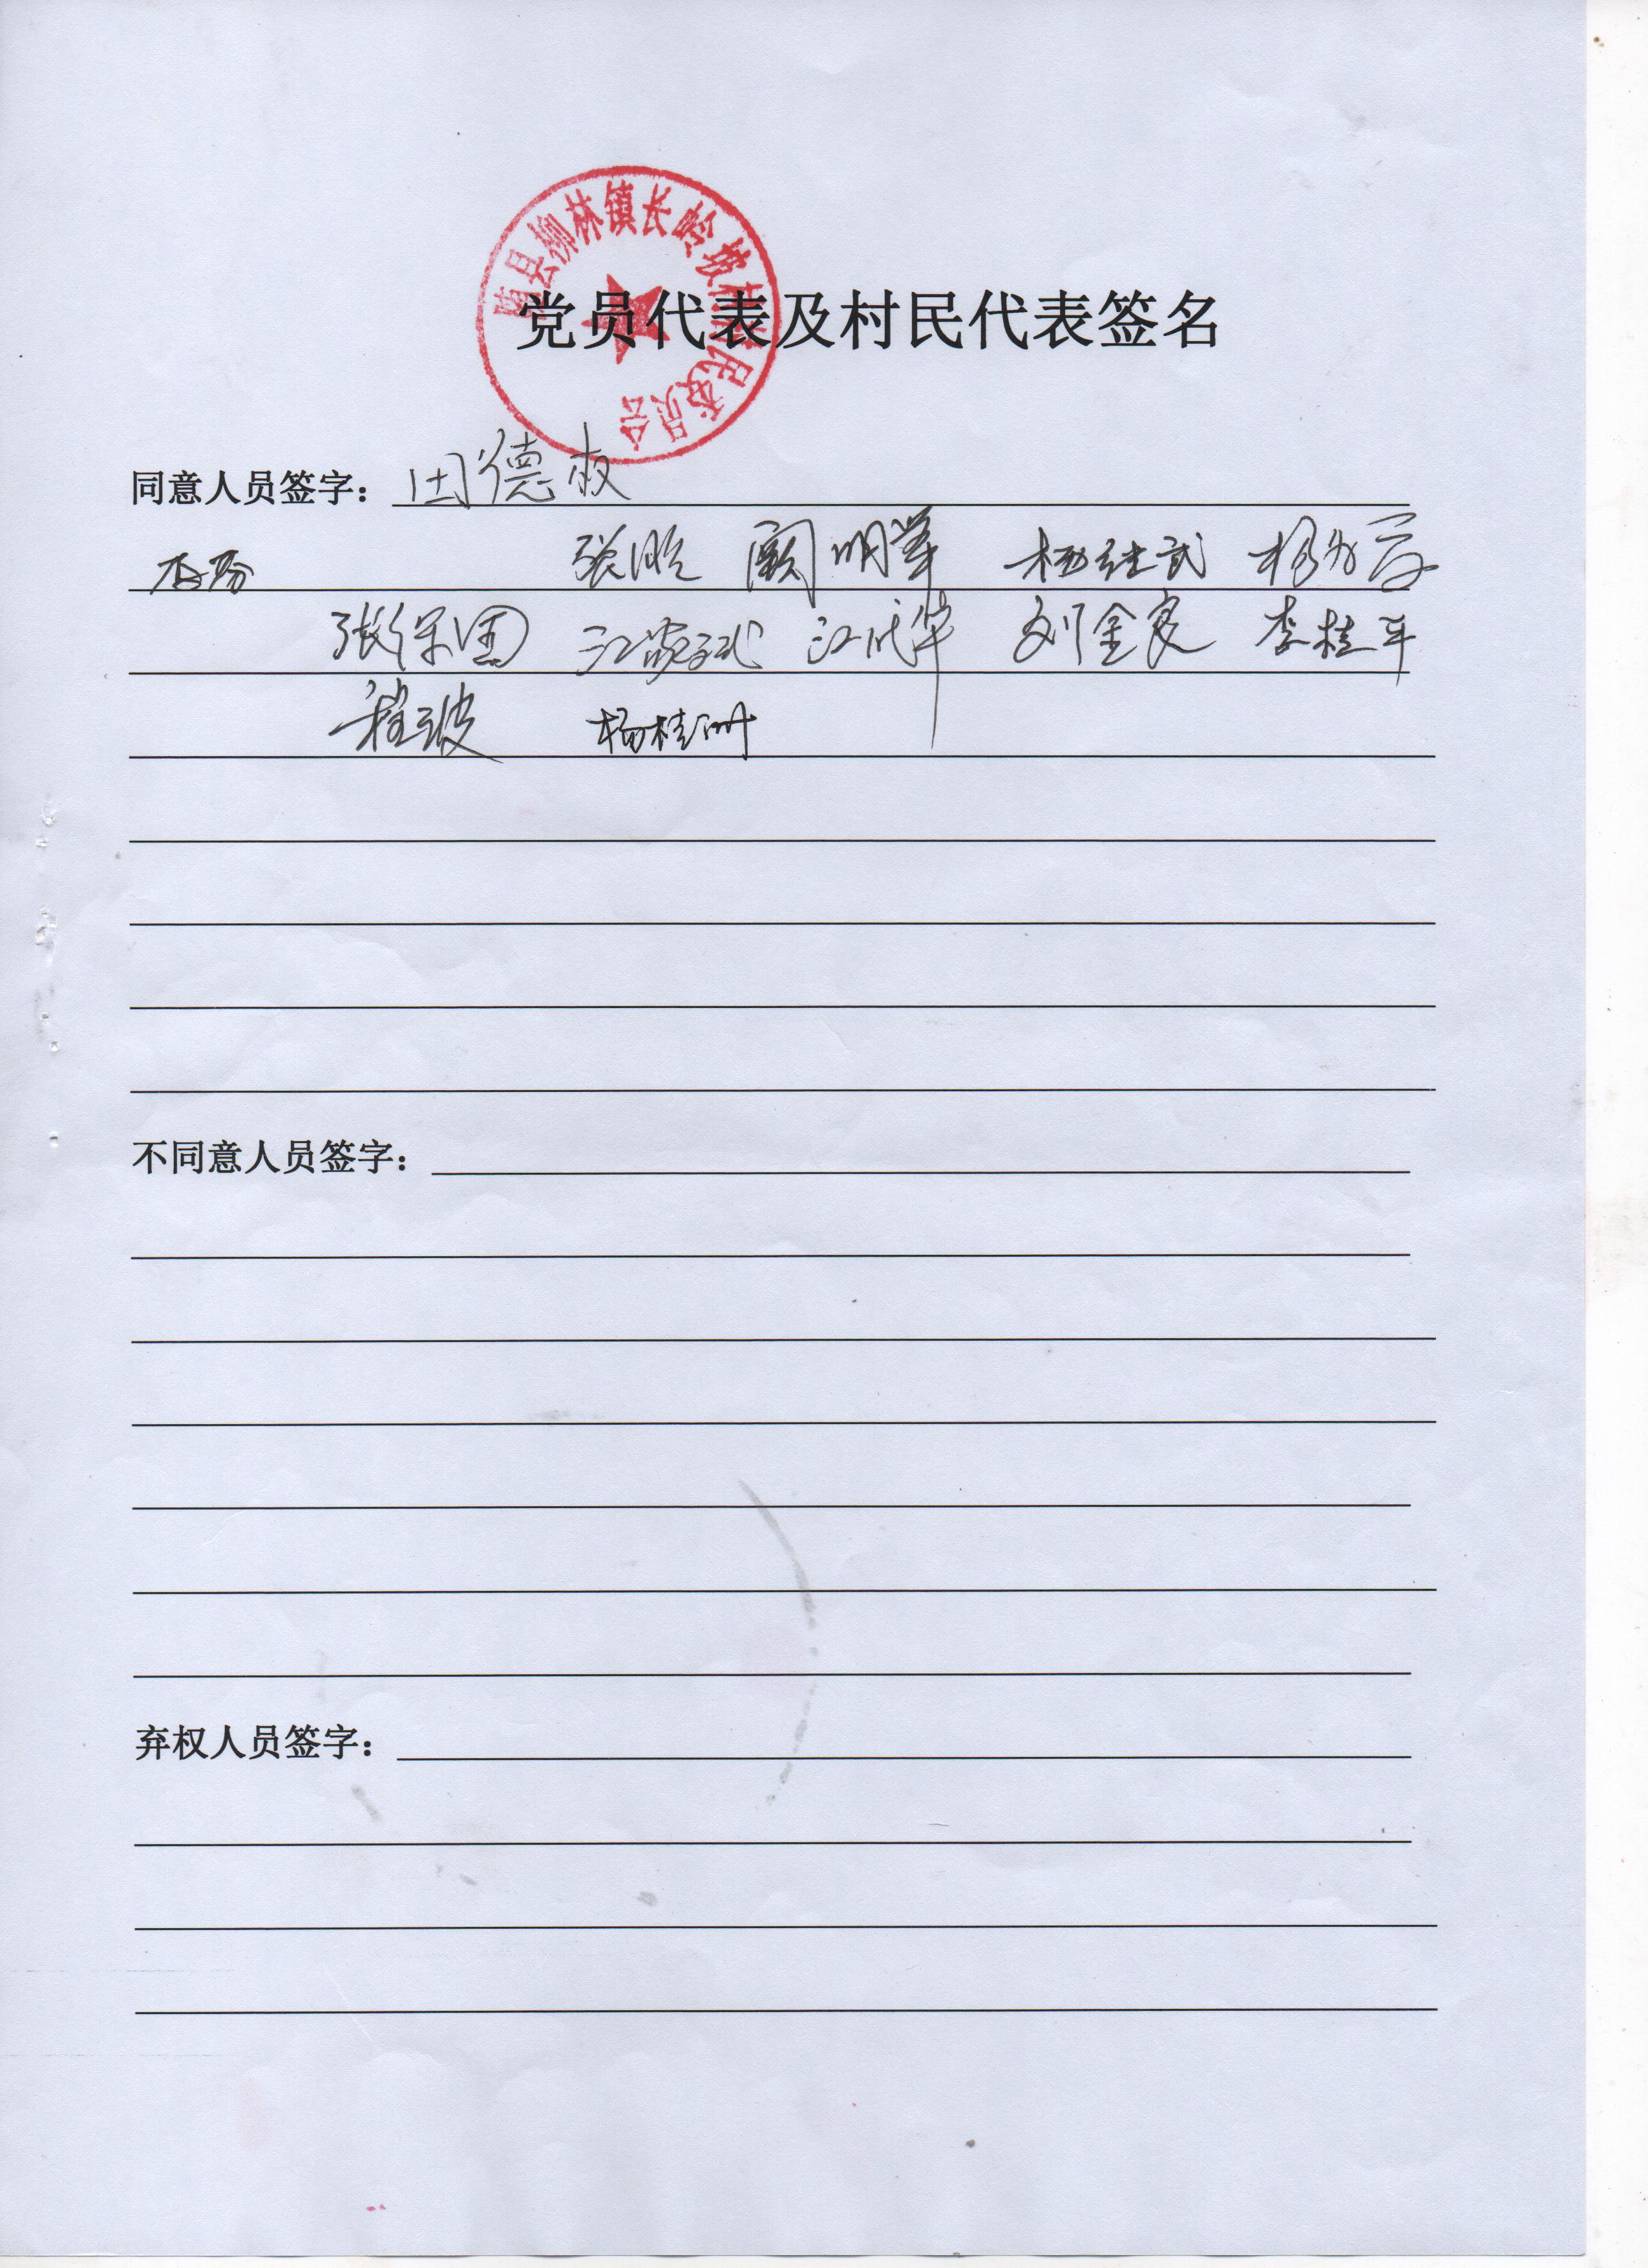 随县柳林镇长岭坡村村民委员会
党员代表及村民代表签名
同意人员签字： 田德权
张鹏 阚明举 杨继武
张保国 江成华 刘金良 李桂平
程波 杨桂洲
不同意人员签字：
弃权人员签字：